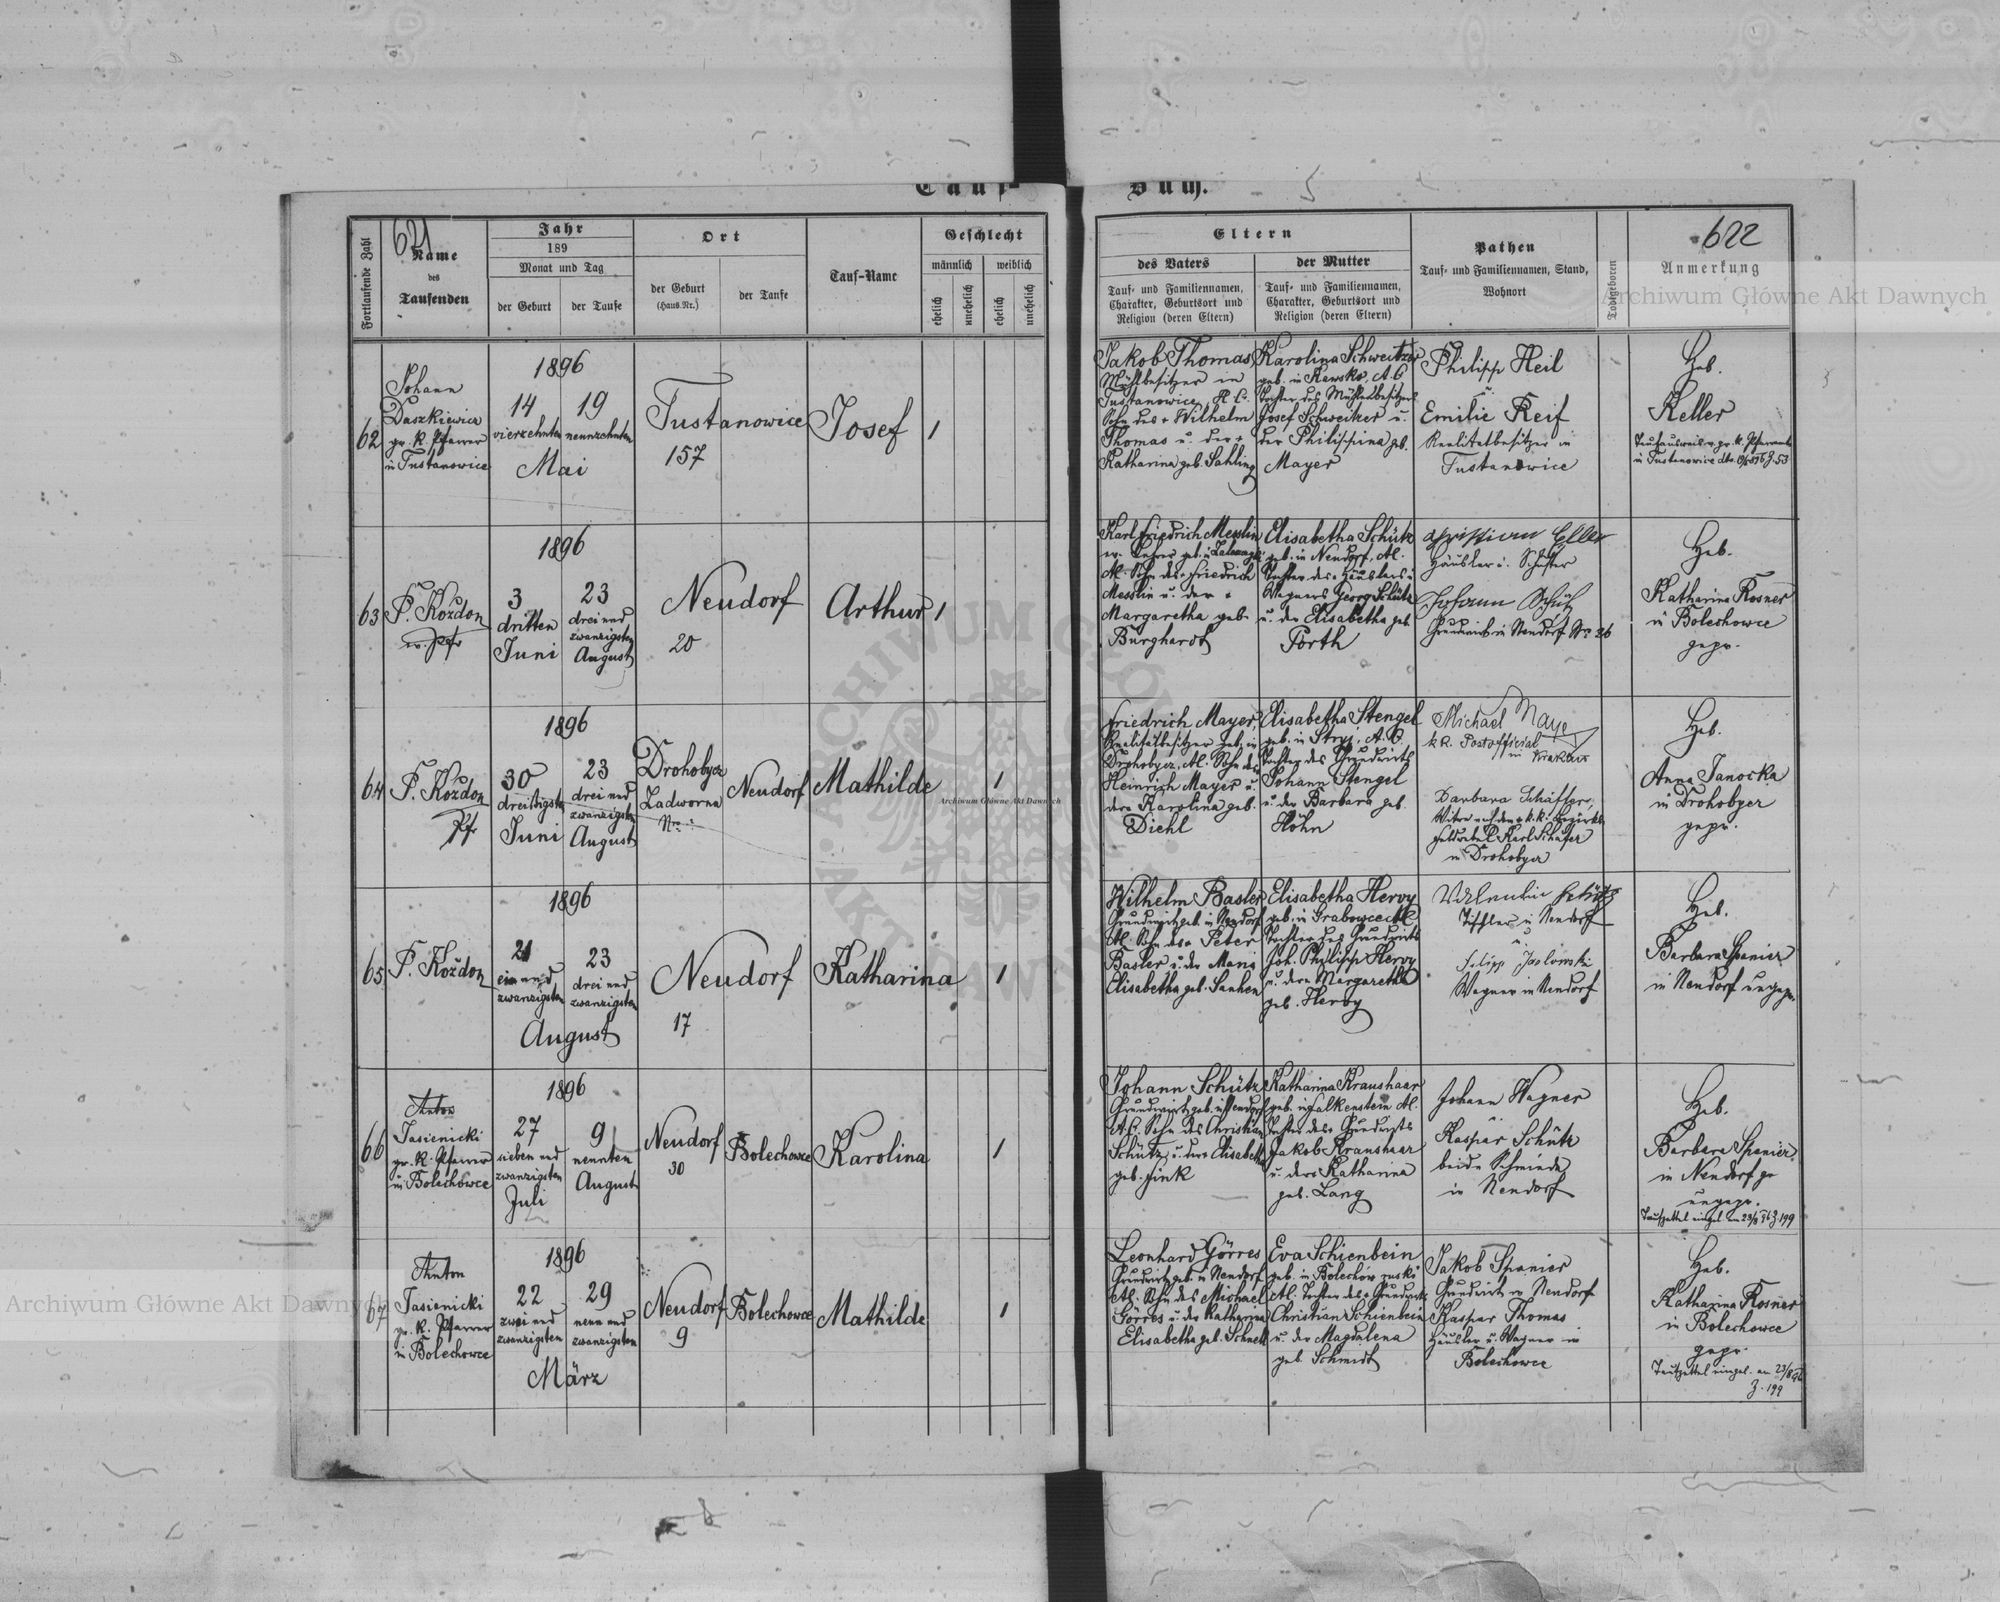 Tauf-
Buch.
621
Fortlaufende Zahl
Name
des
Taufenden
Jahr
189
Monat und Tag
der Geburt
der Taufe
Ort
der Geburt
(Haus-Nr.)
der Taufe
Tauf-Name
Geschlecht
männlich
weiblich
ehelich
unehelich
ehelich
unehelich
Eltern
des Vaters
Tauf- und Familiennamen,
Charakter, Geburtsort und
Religion (deren Eltern)
der Mutter
Tauf- und Familiennamen,
Charakter, Geburtsort und
Religion (deren Eltern)
Pathen
Tauf- und Familiennamen, Stand,
Wohnort
Todtgeboren
622
Anmerkung
Archiwum Główne Akt Dawnych
62
Johann
Daszkiewicz
gr. k. Pfarrer
in Tustanowice
1896
14
vierzehnten
19
neunzehnten
Mai
Tustanowice
157
Josef
1
Jakob Thomas
Mühlbesitzer in
Tustanowice
Sohn des + Wilhelm
Thomas u. der +
Katharina geb. Sahling
Karolina Schweitzer
geb. in
Tochter des Mühlenbesitzers
Josef Schweitzer u.
der Philippina geb.
Mayer
Philipp Heil
u.
Emilie Reif
Realitätbesitzer in
Tustanowice
Heb.
Keller
in Tustanowice
63
P. Kożdon
ev. Pfr
1896
3
dritten
Juni
23
drei und
zwanzigsten
August
Neudorf
20
Arthur
1
Karl Friedrich Messlin
ev. Lehrer geb. in
Sohn des + Friedrich
Messlin u. der +
Margaretha geb.
Burghardt
Elisabetha Schütz
geb. in Neudorf, A.C.
Tochter des + Häuslers u.
Wagners Georg Schütz
u. der Elisabetha geb.
Porth
Christian Eller
Häusler u. Schuster
Johann Schütz
Grundwirth in Neudorf No 26
Heb.
Katharina Rosner
in Bolechowce
gepr.
64
P. Kożdon
Pfr
1896
30
dreißigsten
Juni
23
drei und
zwanzigsten
August
Drohobycz
Zadworna
Nro
Neudorf
Mathilde
1
Archiwum Główne Akt Dawnych
Friedrich Mayer,
Realitätbesitzer geb. in
Drohobycz, A.C. Sohn des
Heinrich Mayer u.
der + Karolina geb.
Diehl
Elisabetha Stengel
geb. in Stryj, A.C.
Tochter des Grundwirts
Johann Stengel
u. der Barbara geb.
Höhn
Michael Mayer
k.k. Postofficial
in Krakau
Barbara Schäffer,
Witwe nach dem + k.k. Bezirks
feldwebel Karl Schäfer
in Drohobycz
Heb.
Anna Janocka
in Drohobycz
gepr.
65
P. Kożdon
1896
21
ein und
zwanzigsten
23
drei und
zwanzigsten
August
Neudorf
17
Katharina
1
Wilhelm Basler
Grundwirt geb. in Neudorf
A.C. Sohn des + Peter
Basler u. der Maria
Elisabetha geb. Sanhen
Elisabetha Hervy
geb. in Grabowce A.C.
Tochter des Grundwirts
Joh. Philipp Hervy
u. der + Margaretha
geb. Hervy
Valentin Schütz
Tischler in Neudorf
u.
Filipp Jaslowski
Wagner in Neudorf
Heb.
Barbara Spanier
in Neudorf ungepr.
66
Anton
Jasienicki
gr. k. Pfarrer
in Bolechowce
1896
27
sieben und
zwanzigsten
Juli
9
neunten
August
Neudorf
30
Bolechowce
Karolina
1
Johann Schütz
Grundwirt geb. in Neudorf
A.C. Sohn des Christian
Schütz u. der + Elisabeth
geb. Fink
Katharina Kraushaar
geb. in Falkenstein A.C.
Tochter des + Grundwirts
Jakob Kraushaar
u. der + Katharina
geb. Lang
Johann Wagner
u.
Kaspar Schütz
beide Schmiede
in Neudorf
Heb.
Barbara Spanier
in Neudorf
ungepr.
Taufzettel eingel. am 23/8 96 Z. 199
67
Anton
Jasienicki
gr. k. Pfarrer
in Bolechowce
1896
22
zwei und
zwanzigsten
29
neun und
zwanzigsten
März
Neudorf
9
Bolechowce
Mathilde
1
Leonhard Görres
Grundwirt geb. in Neudorf
A.C. Sohn des Michael
Görres u. der Katharina
Elisabetha geb. Schnell
Eva Schienbein
geb. in Bolechów ruski
A.C. Tochter des + Grundwirts
Christian Schienbein
u. der Magdalena
geb. Schmidt
Jakob Spanier
Grundwirt in Neudorf
Kaspar Thomas
Häusler u. Wagner in
Bolechowce
Heb.
Katharina Rosner
in Bolechowce
gepr.
Taufzettel eingel. am 23/8 96
Z. 199
Archiwum Główne Akt Dawnych
ARCHIWUM GŁÓWNE AKT DAWNYCH